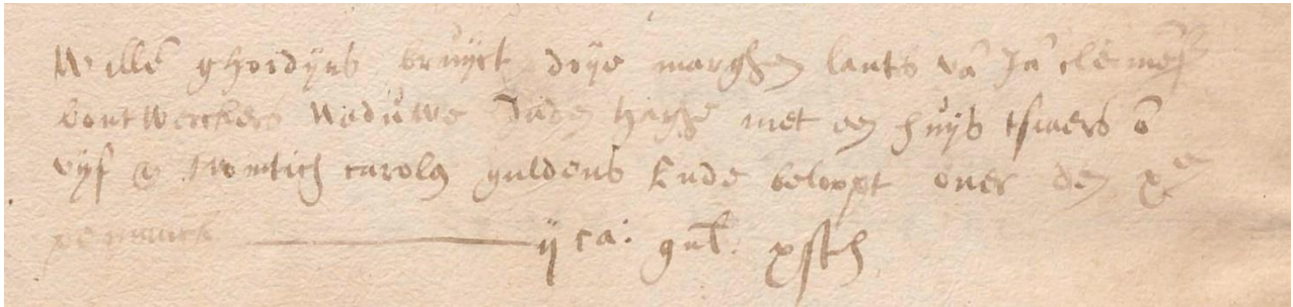 Willē ghordijns bruijct drije marghen lants vā Jā clemēs
bontwerckers Weduwe Inden haghe met een huijs tsiaers ō
vijf & twintich carolus guldens Ende beloopt over den xe
penninck ij ca: gul. x st